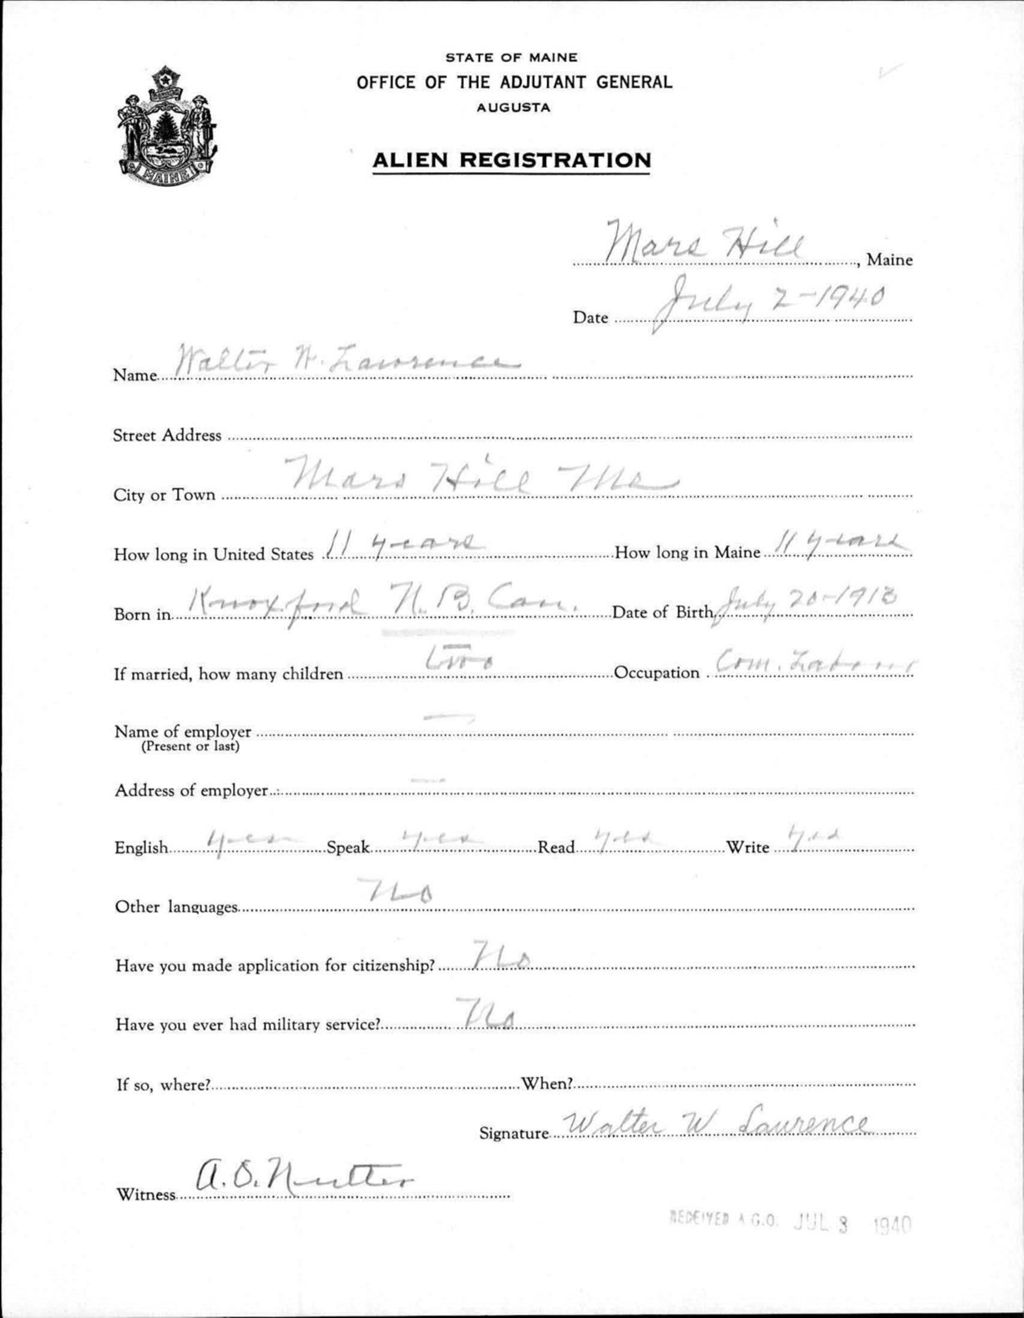 STATE OF MAINE
OFFICE OF THE ADJUTANT GENERAL
AUGUSTA
ALIEN REGISTRATION
MAINE
Mars Hill, Maine
Date July 2-1940
Name Walter W. Lawrence
Street Address
City or Town Mars Hill Me
How long in United States 11 years How long in Maine 11 years
Born in Knoxford N.B. Can. Date of Birth July 20-1913
If married, how many children two Occupation Com. Laborer
Name of employer —
(Present or last)
Address of employer —
English yes Speak yes Read yes Write yes
Other languages No
Have you made application for citizenship? No
Have you ever had military service? No
If so, where? When?
Signature Walter W Lawrence
Witness A.O. Nutter
RECEIVED A.G.O. JUL 3 1940